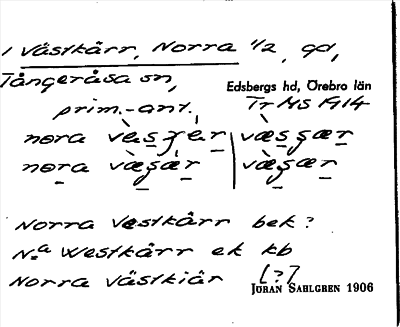 1 Västkärr, Norra 1/2, gd,
Tångeråsa sn,
Edsbergs hd, Örebro län
prim.-ant.
Tr MS 1914
nora
nora
Norra Vestkärr bek?
N:a Westkärr ek kb
Norra Västkiär [?]
JÖRAN SAHLGREN 1906